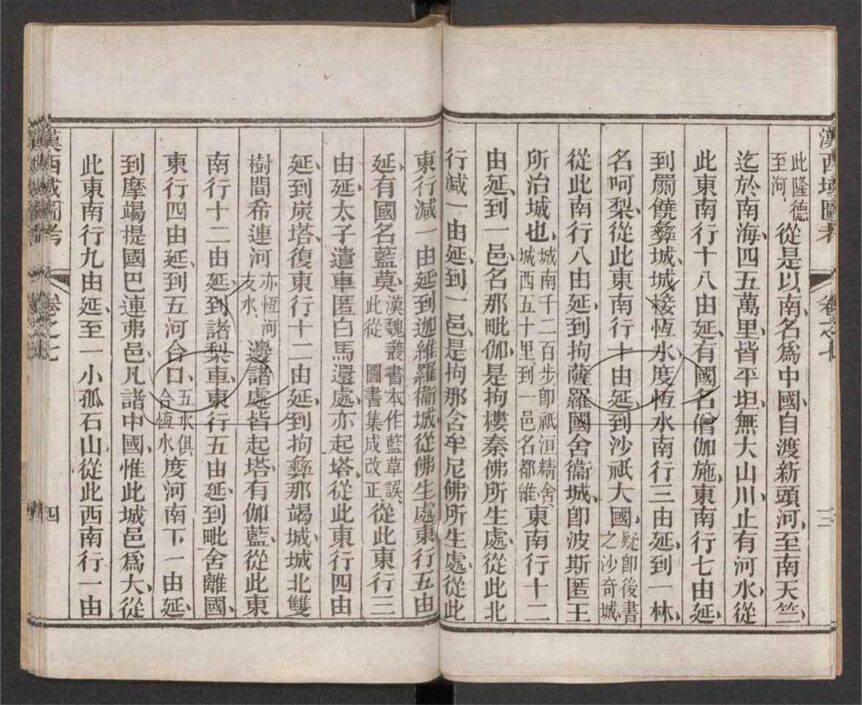 漢西域圖考 卷之七 三
此隆德至河從是以南名爲中國自渡新頭河至南天竺、
迄於南海四五萬里皆平坦無大山川止有河水從
此東南行十八由延、有國名僧伽施、東南行七由延、
到罽饒彝城、城接恆水、度恆水南行三由延、到一林、
名呵梨、從此東南行十由延、到沙祇大國、疑卽後書之沙奇城、
從此南行八由延、到拘薩羅國舍衞城、卽波斯匿王
所治城也、城南千二百步卽祇洹精舍、城西五十里到一邑名都維東南行十二
由延、到一邑名那毗伽、是拘樓秦佛所生處、從此北
行減一由延、到一邑、是拘那舍牟尼佛所生處、從此
東行減一由延、到迦維羅衞城、從佛生處東行五由
延、有國名藍莫、漢魏叢書本作藍草誤、此從圖書集成改正、從此東行三
由延、太子遣車匿白馬還處、亦起塔、從此東行四由
延、到炭塔、復東行十二由延、到拘彝那竭城、城北雙
樹間希連河亦恆河支水、邊諸處皆起塔、有伽藍、從此東
南行十二由延、到諸梨車、東行五由延、到毗舍離國、
東行四由延、到五河合口、五水俱合恆水、度河南下一由延、
到摩竭提國巴連弗邑、凡諸中國、惟此城邑爲大、從
此東南行九由延、至一小孤石山、從此西南行一由
漢西域圖考 卷之七 四